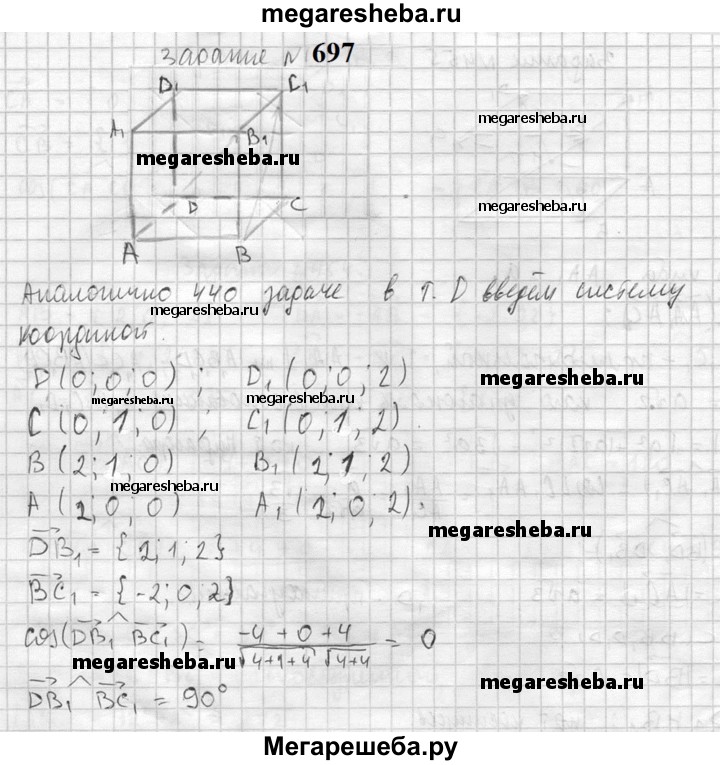 megaresheba.ru
задание N 697
D1 C1
A1 B1
megaresheba.ru
megaresheba.ru
D C
megaresheba.ru
A B
Аналогично 440 задаче в т. D введём систему
megaresheba.ru
координат.
D (0; 0; 0) ; D₁ (0; 0; 2)
megaresheba.ru
megaresheba.ru megaresheba.ru
C (0; 1; 0) ; C₁ (0; 1; 2).
B (2; 1; 0) B₁ (2; 1; 2)
megaresheba.ru
A (2; 0; 0) A₁ (2; 0; 2).
megaresheba.ru
DB₁ = {2; 1; 2}
BC₁ = {-2; 0; 2}
cos(DB₁ ^ BC₁) = (-4 + 0 + 4)/(√4+1+4 √4+4) = 0
megaresheba.ru
megaresheba.ru
DB₁ ^ BC₁ = 90°
Мегарешеба.ру